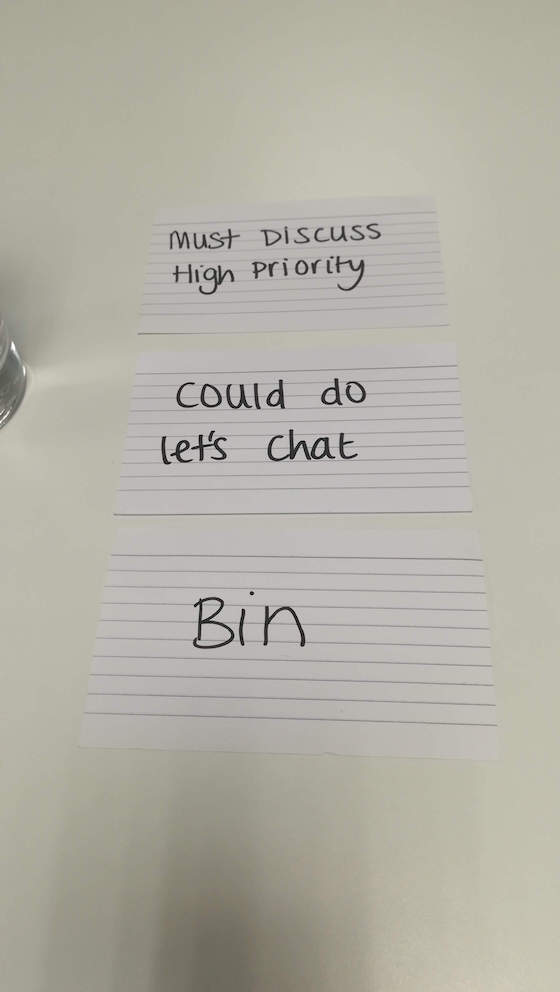 Must Discuss
High Priority
Could do
let's chat
Bin